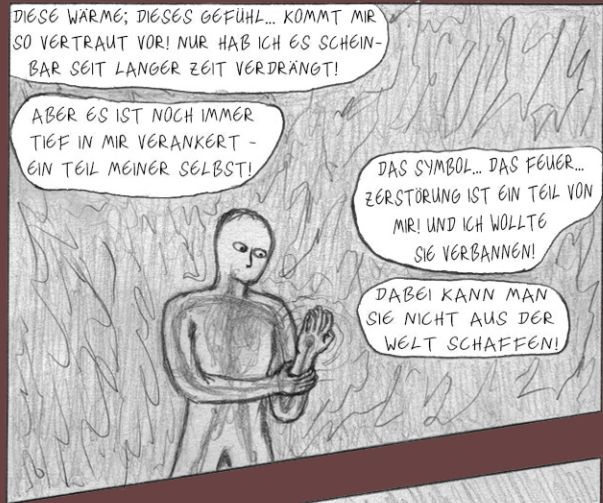 DIESE WÄRME; DIESES GEFÜHL... KOMMT MIR
SO VERTRAUT VOR! NUR HAB ICH ES SCHEIN-
BAR SEIT LANGER ZEIT VERDRÄNGT!
ABER ES IST NOCH IMMER
TIEF IN MIR VERANKERT -
EIN TEIL MEINER SELBST!
DAS SYMBOL... DAS FEUER...
ZERSTÖRUNG IST EIN TEIL VON
MIR! UND ICH WOLLTE
SIE VERBANNEN!
DABEI KANN MAN
SIE NICHT AUS DER
WELT SCHAFFEN!